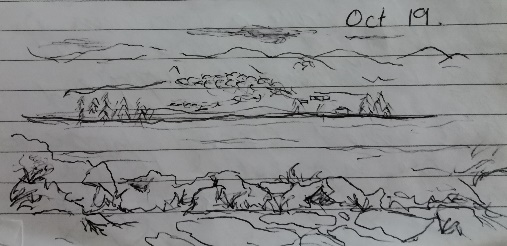 Oct 19.